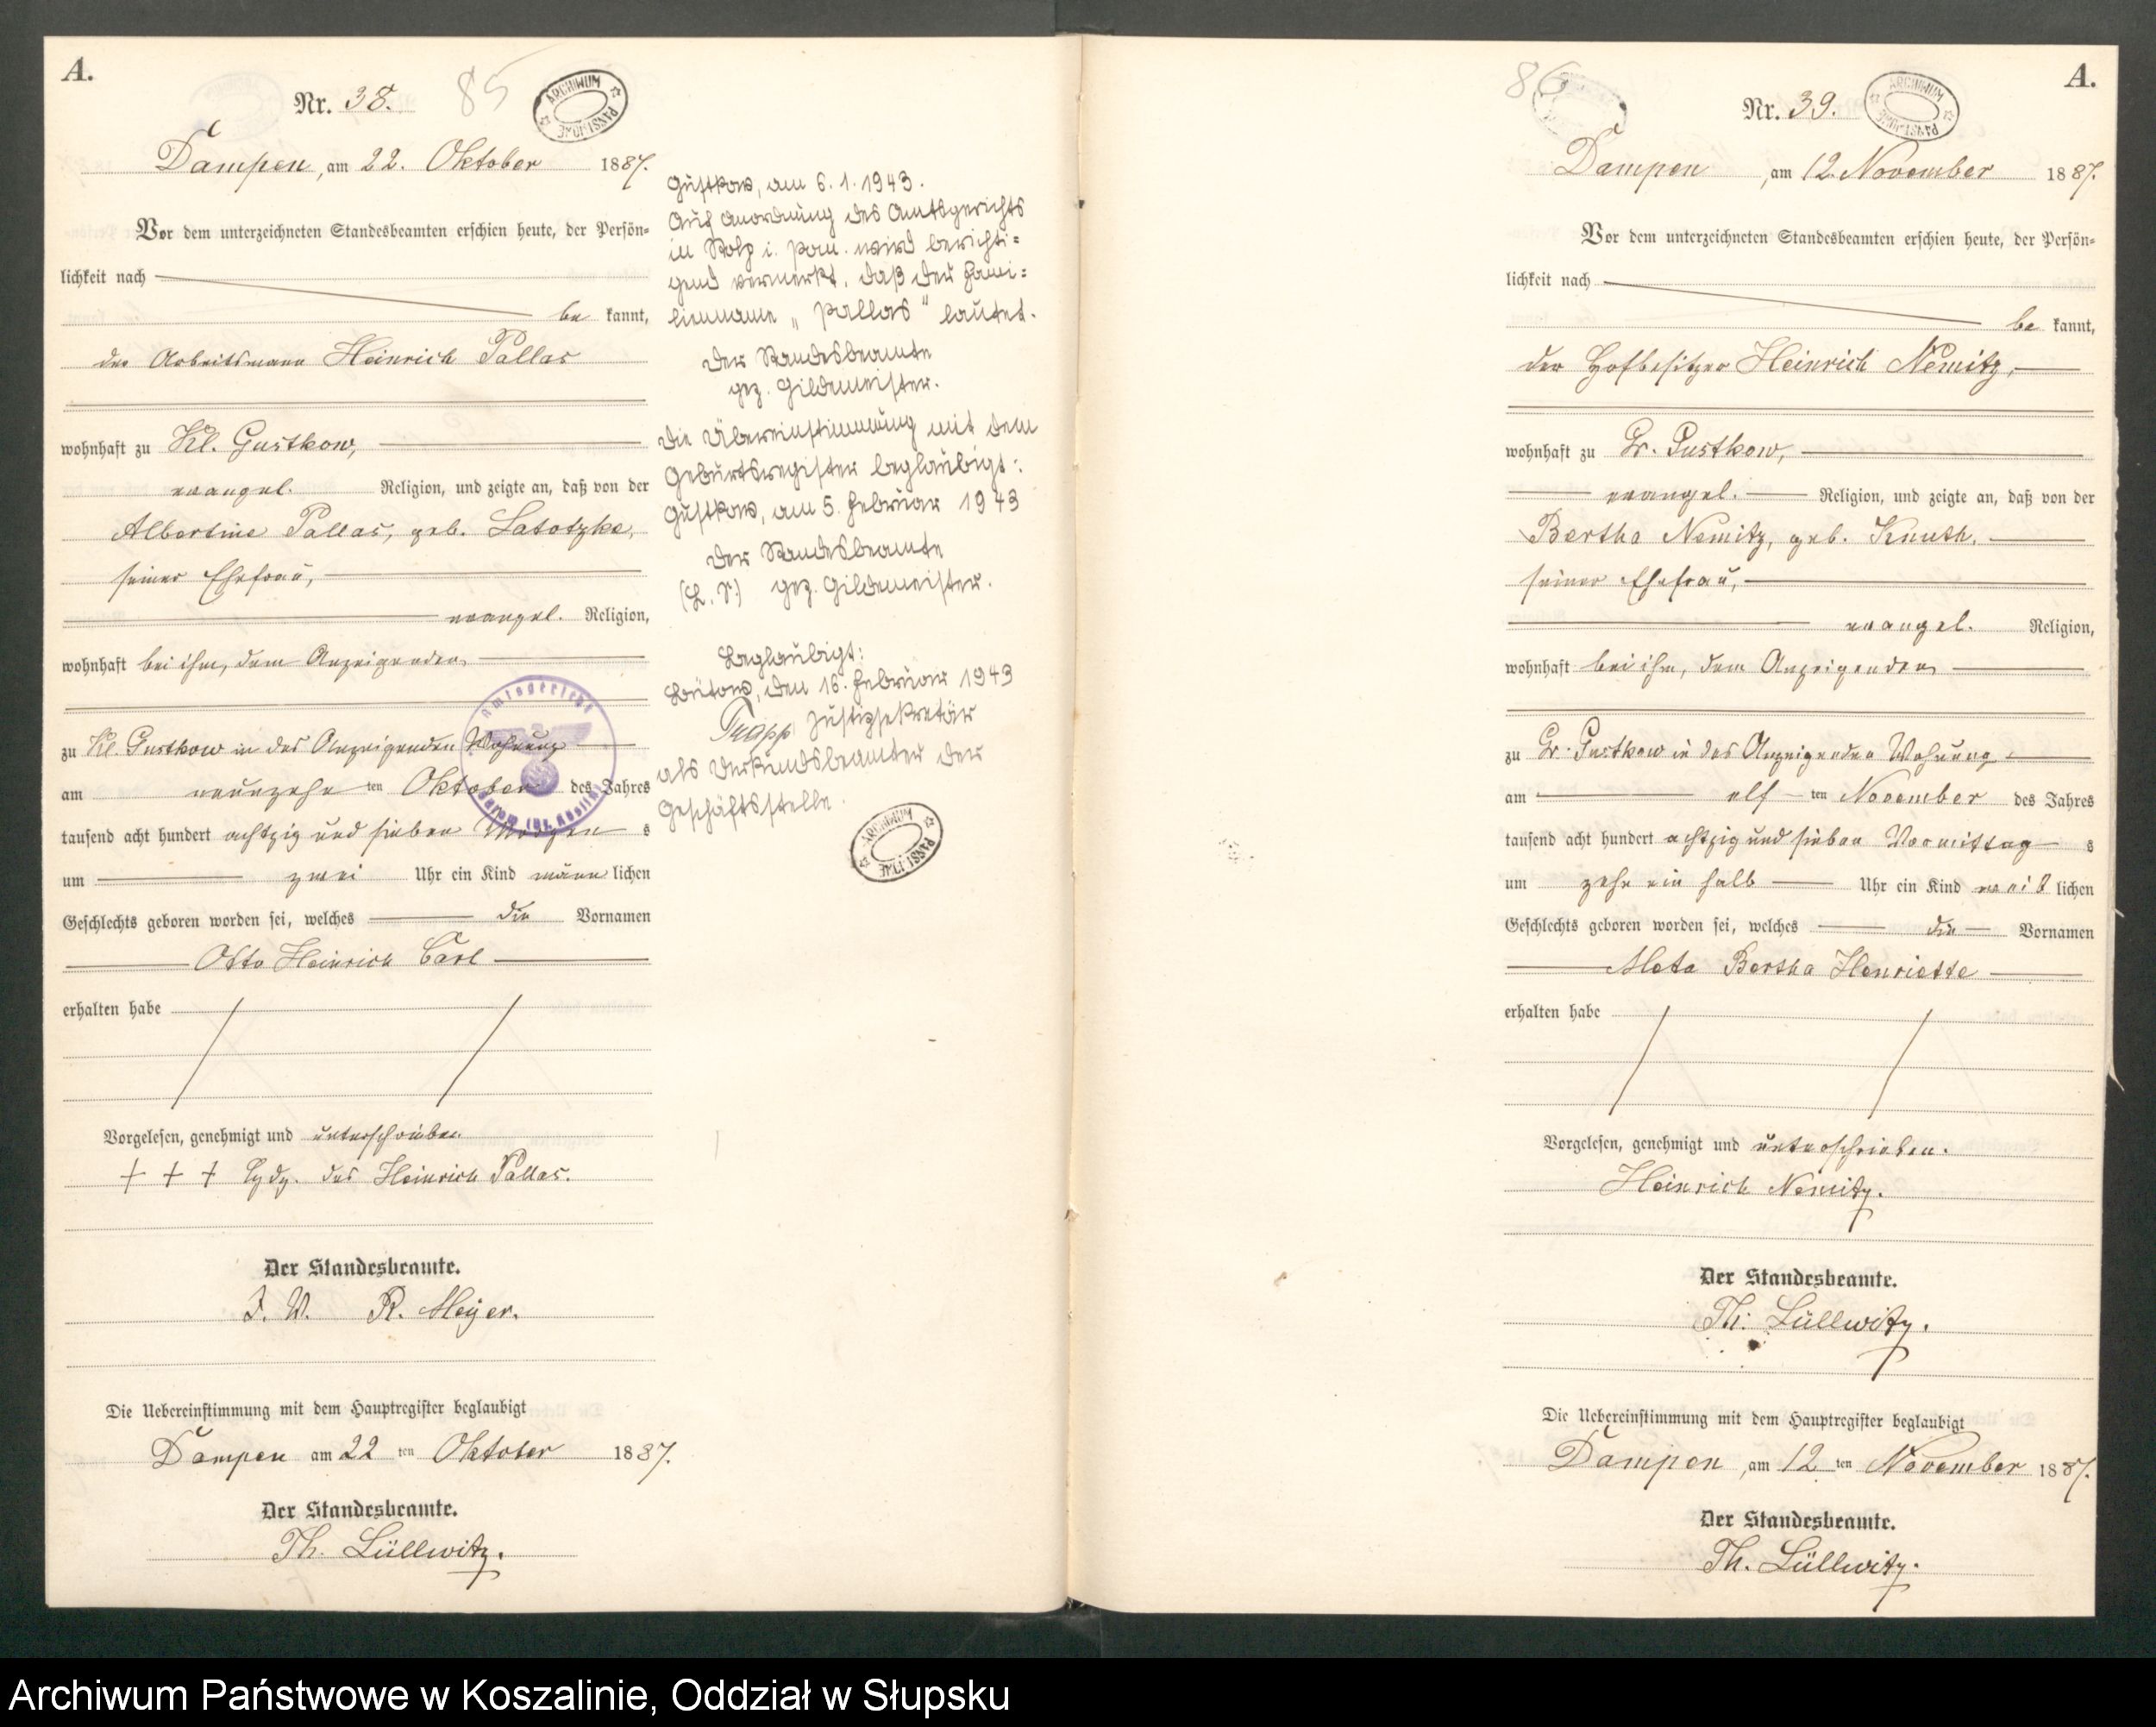 A.
Nr. 38.
85
ARCHIWUM PAŃSTWOWE
Dampen, am 22. Oktober 1887.
Vor dem unterzeichneten Standesbeamten erschien heute, der Persön=
lichkeit nach
be kannt,
der Arbeitsmann Heinrich Pallas
wohnhaft zu Kl. Gustkow,
evangel. Religion, und zeigte an, daß von der
Albertine Pallas, geb. Latotzke,
seiner Ehefrau,
evangel. Religion,
wohnhaft bei ihm, dem Anzeigenden
zu Kl. Gustkow in des Anzeigenden Wohnung
am neunzehn ten Oktober des Jahres
tausend acht hundert achtzig und sieben Morgen s
um zwei Uhr ein Kind männ lichen
Geschlechts geboren worden sei, welches die Vornamen
Otto Heinrich Carl
erhalten habe
Vorgelesen, genehmigt und unterschrieben
+ + + Hdz. des Heinrich Pallas.
Der Standesbeamte.
I. V. R. Meyer.
Die Uebereinstimmung mit dem Hauptregister beglaubigt
Dampen am 22 ten Oktober 1887.
Der Standesbeamte.
Th. Lüllwitz.
Gustkow, am 6. 1. 1943.
Auf Anordnung des Amtsgerichts
in Stolp i. Pom. wird berichti=
gend vermerkt, daß der Fami=
lienname „Pallas" lautet.
Der Standesbeamte
gez. Gildemeister.
Die Übereinstimmung mit dem
Geburtsregister beglaubigt:
Gustkow, am 5. Februar 1943
Der Standesbeamte
(L. S.) gez. Gildemeister.
Beglaubigt:
Bütow, den 16. Februar 1943
Trapp Justizsekretär
als Urkundsbeamter der
Geschäftsstelle.
Amtsgericht
ARCHIWUM PAŃSTWOWE
86
A.
Nr. 39.
ARCHIWUM PAŃSTWOWE
Dampen, am 12. November 1887.
Vor dem unterzeichneten Standesbeamten erschien heute, der Persön=
lichkeit nach
be kannt,
der Hofbesitzer Heinrich Nemitz,
wohnhaft zu Gr. Gustkow,
evangel. Religion, und zeigte an, daß von der
Bertha Nemitz, geb. Knuth,
seiner Ehefrau,
evangel. Religion,
wohnhaft bei ihm, dem Anzeigenden
zu Gr. Gustkow in des Anzeigenden Wohnung
am elf ten November des Jahres
tausend acht hundert achtzig und sieben Vormittag s
um zehn ein halb Uhr ein Kind weib lichen
Geschlechts geboren worden sei, welches die Vornamen
Meta Bertha Henriette
erhalten habe
Vorgelesen, genehmigt und unterschrieben.
Heinrich Nemitz.
Der Standesbeamte.
Th. Lüllwitz.
Die Uebereinstimmung mit dem Hauptregister beglaubigt
Dampen, am 12 ten November 1887.
Der Standesbeamte.
Th. Lüllwitz.
Archiwum Państwowe w Koszalinie, Oddział w Słupsku